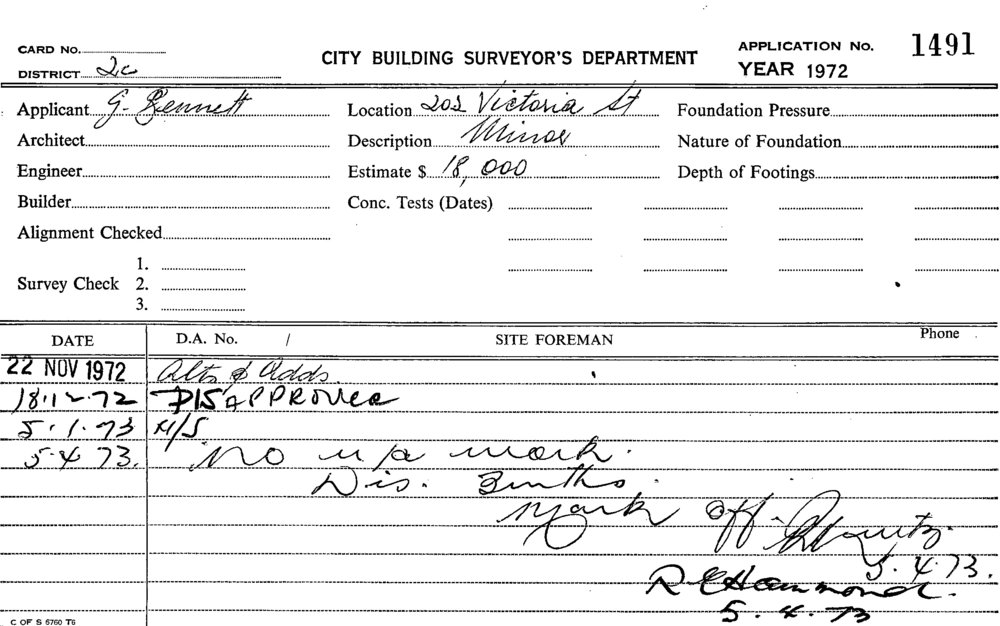 CARD NO.
CITY BUILDING SURVEYOR'S DEPARTMENT
APPLICATION NO. 1491
DISTRICT 2c
YEAR 1972
Applicant G. Bennett
Location 202 Victoria St
Foundation Pressure
Architect
Description Minor
Nature of Foundation
Engineer
Estimate $ 18,000
Depth of Footings
Builder
Conc. Tests (Dates)
Alignment Checked
Survey Check
1.
2.
3.
DATE
D.A. No. /
SITE FOREMAN
Phone
22 NOV 1972 Alts & Adds.
18.12.72 DISAPPROVED
5.1.73 N/S
5.4.73. No u/a work.
Dis.
Mark Off.
5.4.73.
R E Hammond.
5.4.73
C OF S 5760 T6